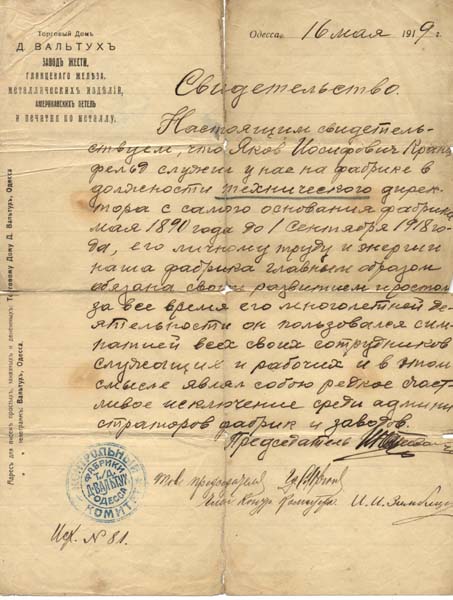 Торговый Домъ
Д. ВАЛЬТУХЪ
ЗАВОДЪ ЖЕСТИ,
ГЛЯНЦЕВАГО ЖЕЛѢЗА,
МЕТАЛЛИЧЕСКИХЪ ИЗДѢЛІЙ,
АМЕРИКАНСКИХЪ ПЕТЕЛЬ
И ПЕЧАТНЯ ПО МЕТАЛЛУ.
Одесса, 16 мая 1919 г.
Свидетельство.
Настоящим свидетель-
ствуем, что Яков Иосифович Кранц
фельд служил у нас на фабрике в
должности технического дирек-
тора с самого основания фабрики
мая 1890 года до 1 Сентября 1918 го-
да, его личному труду и энергии
наша фабрика главным образом
обязана своим развитием и ростом
за все время его многолетней де-
ятельности он пользовался сим-
патией всех своих сотрудников
служащих и рабочих и в этом
смысле являл собою редкое счаст-
ливое исключение среди админи
страторов фабрик и заводов.
Председатель
Тов. председателя
Член Контр. Комитета И. И.
КОНТРОЛЬНЫЙ
КОМИТЕТ
ФАБРИКИ
Т/Д.
Д. ВАЛЬТУХ
ОДЕССА
Исх. № 81.
Адресъ для писемъ простыхъ, заказныхъ и денежныхъ: Торговому Дому Д. Вальтухъ, Одесса
телеграммъ: Вальтухъ, Одесса.